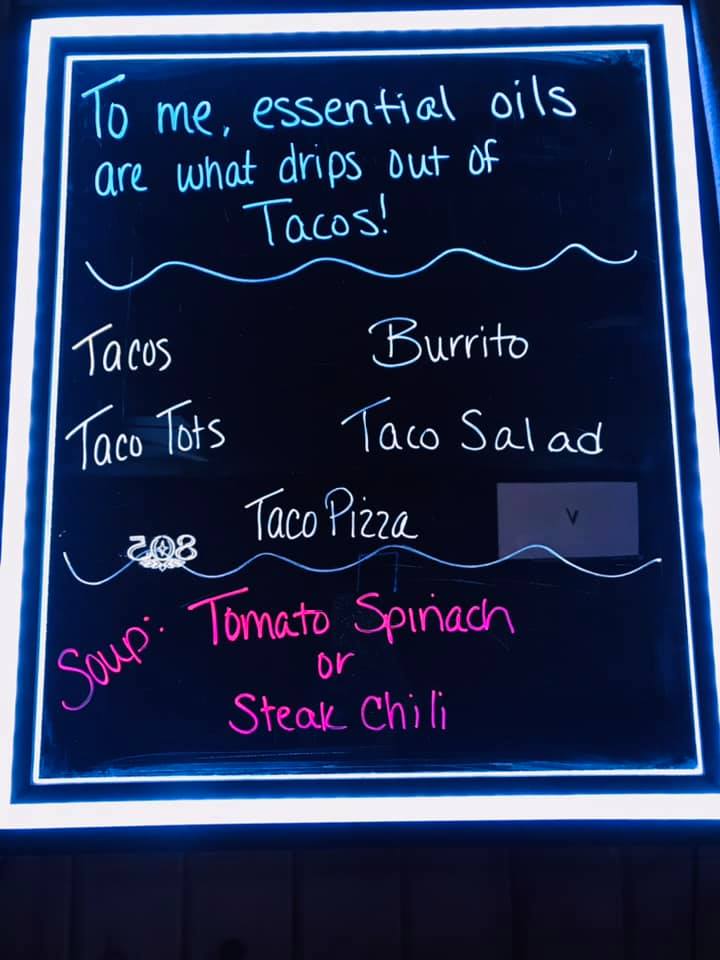 To me, essential oils
are what drips out of
Tacos!
Tacos Burrito
Taco Tots Taco Salad
Taco Pizza V
805
Soup: Tomato Spinach
or
Steak Chili